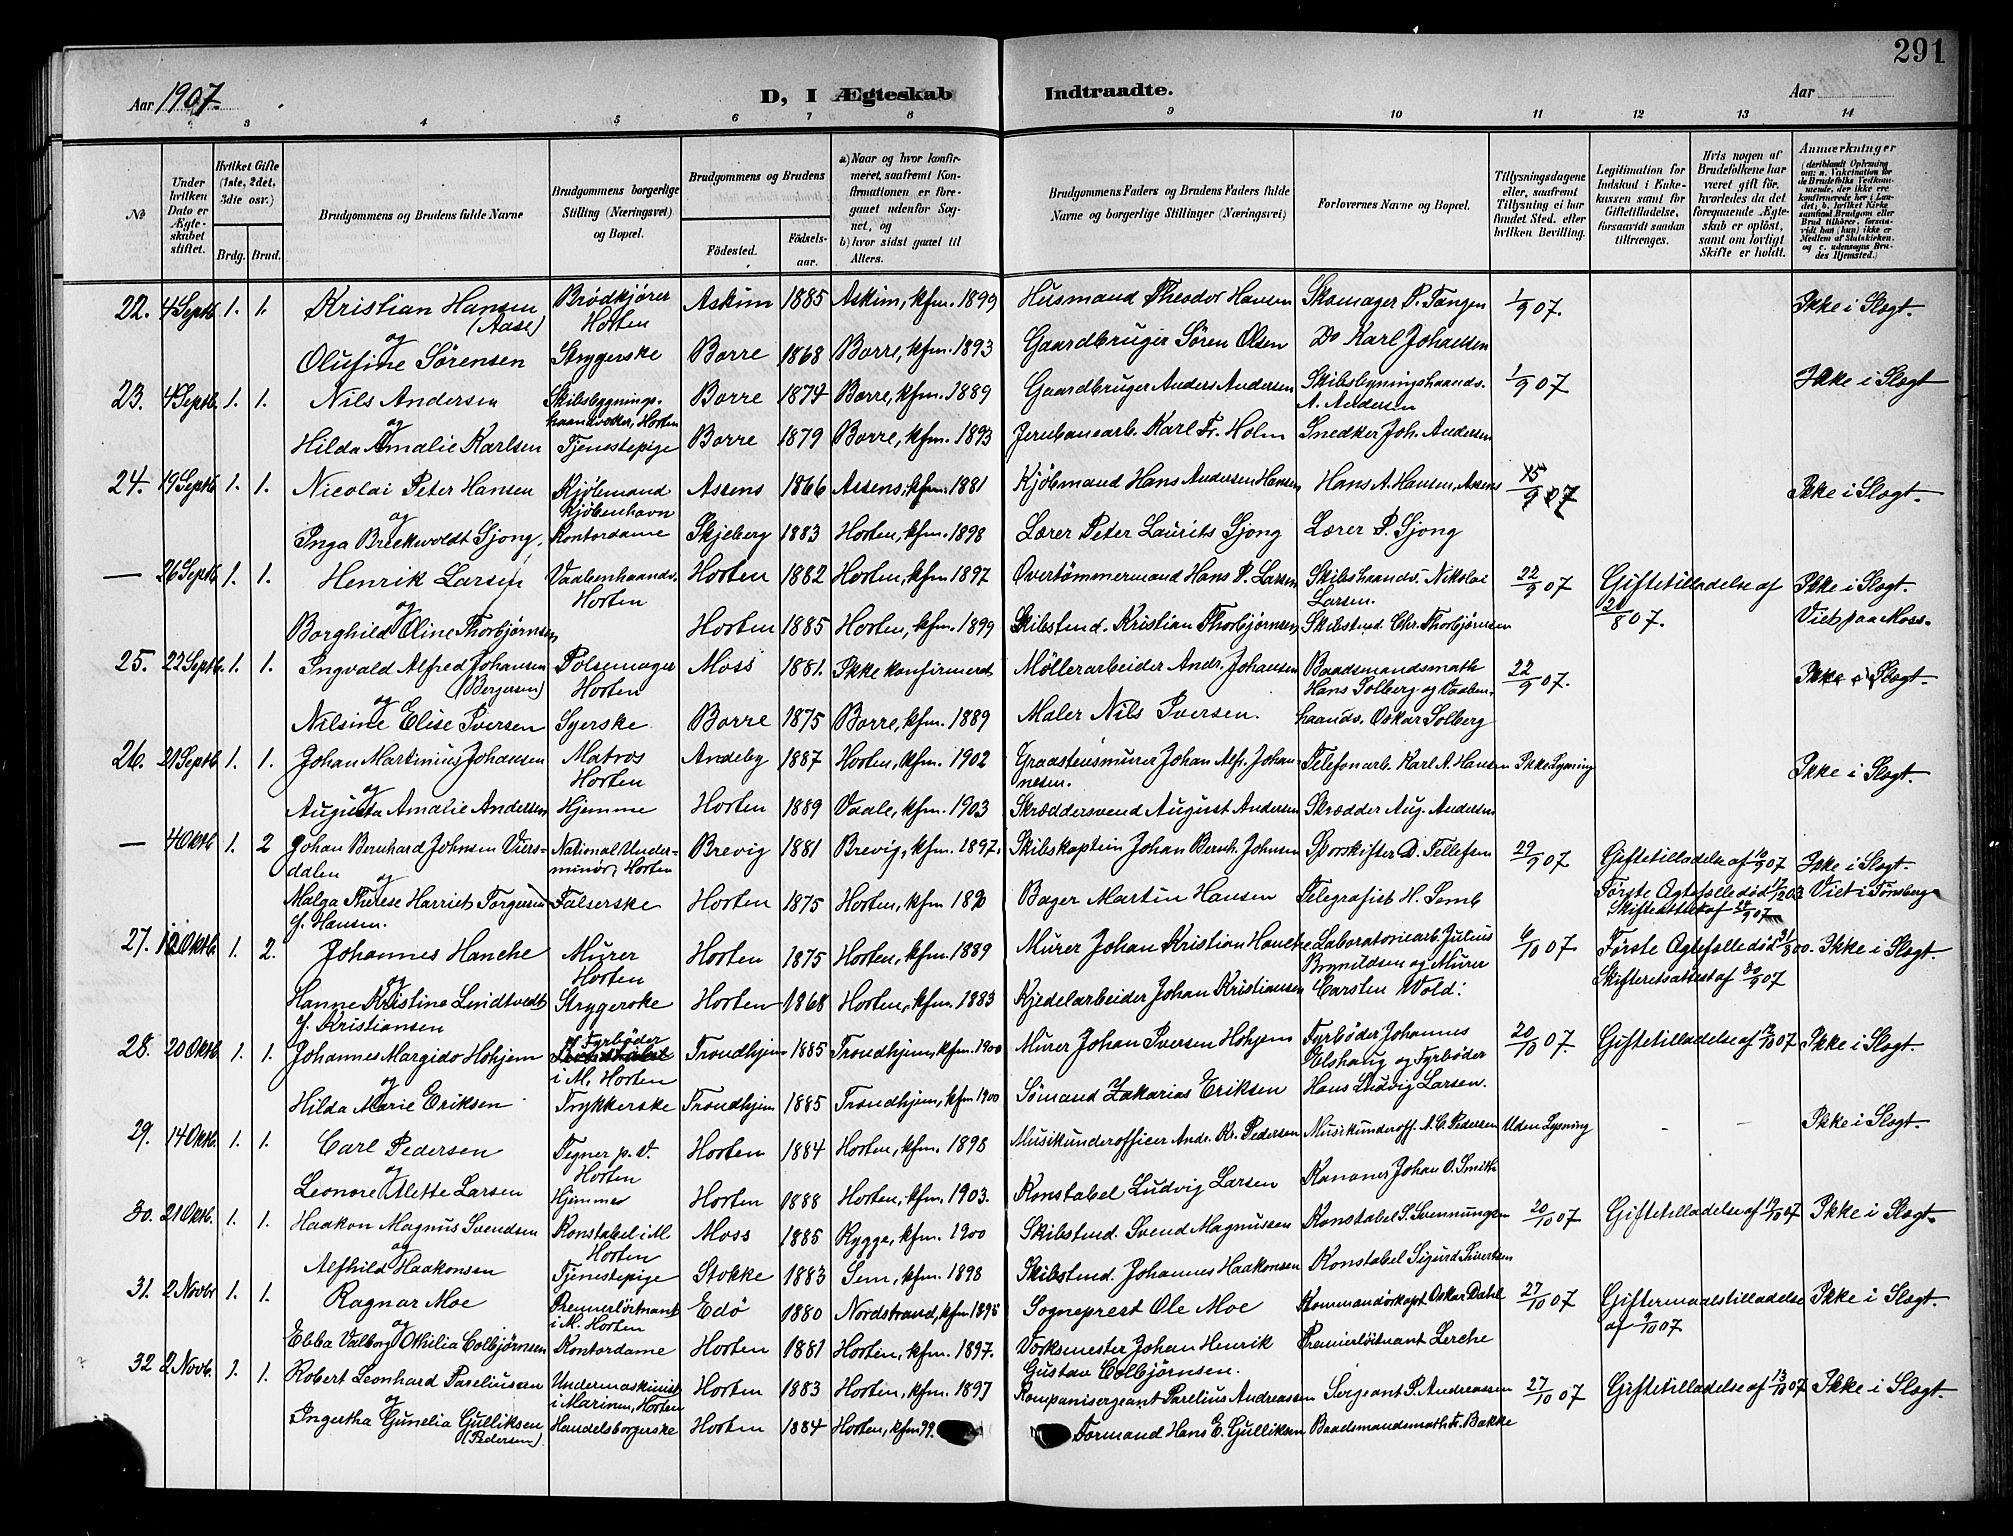 291
Aar 1907. D, I Ægteskab Indtraadte. Aar
3 4 5 6 7 8 9 10 11 12 13 14
No
Under hvilken Dato er Ægteskabet stiftet.
Hvilket Gifte (1ste, 2det, 3die osv.)
Brdg. Brud.
Brudgommens og Brudens fulde Navne
Brudgommens borgerlige Stilling (Næringsvei) og Bopæl.
Brudgommens og Brudens
Fødested. Fødselsaar.
a) Naar og hvor konfirmeret, saafremt Konfirmationen er foregaaet udenfor Sognet, og
b) hvor sidst gaaet til Alters.
Brudgommens Faders og Brudens Faders fulde Navne og borgerlige Stillinger (Næringsvei)
Forlovernes Navne og Bopæl.
Tillysningsdagene eller, saafremt Tillysning ei har fundet Sted, efter hvilken Bevilling.
Legitimation for Indskud i Enkekassen samt for Giftetilladelse, forsaavidt saadan tiltrænges.
Hvis nogen af Brudefolkene har været gift før, hvorledes da det foregaaende Ægteskab er opløst, samt om lovligt Skifte er holdt.
Anmærkninger
22. 4 Septb. 1. 1. Kristian Hansen (Aase) Brödkjører Horten Askim 1885 Askim, kfm. 1899 Husmand Theodor Hansen Skomager P. Tangen 1/9 07. Ikke i Slægt.
og
Olufine Sørensen Strygerske Borre 1868 Borre, kfm. 1893 Gaardbruger Søren Olsen Do Karl Johansen
23. 4 Septb. 1. 1. Nils Andersen Skibsbygningshaandværker, Horten Borre 1874 Borre, kfm. 1889 Gaardbruger Anders Andersen Skibsbygningshaandv. A. Andersen 1/9 07 Ikke i Slægt
og
Hilda Amalie Karlsen Tjenestepige Borre 1879 Borre, kfm. 1893 Jernbanearb. Karl Fr. Holm Snedker Joh. Andersen
24. 19 Septb. 1. 1. Nicolai Peter Hansen Kjøbmand Kjøbenhavn Assens 1866 Assens, kfm. 1881 Kjøbmand Hans Andersen Hansen Hans A. Hansen, Assens 15/9 07 Ikke i Slægt.
og
Inga Breckwoldt Sjong. Kontordame Skjeberg 1883 Horten, kfm. 1898 Lærer Peter Laurits Sjong Lærer P. Sjong
— 26 Septb. 1. 1. Henrik Larsen Vaabenhaandv. Horten Horten 1882 Horten, kfm. 1897 Overtömmermand Hans P. Larsen Skibshaandv. Nikolai Larsen. 22/9 07 Giftetilladelse af 20/8 07. Ikke i Slægt. Viet paa Moss.
og
Borghild Oline Thorbjørnsen Horten 1885 Horten, kfm. 1899 Skibstmd. Kristian Thorbjørnsen, Skibstmd. Chr. Thorbjørnsen
25. 22 Septb. 1. 1. Ingvald Alfred Johansen (Bergersen) Pølsemager Horten Moss 1881. Ikke konfirmeret Møllerarbeider Andr. Johansen Baadsmandsmath Hans Solberg og Vaabenhaandv. Oskar Solberg 22/9 07. Ikke i Slægt.
og
Nilsine Elise Iversen Syerske Borre 1875 Borre, kfm. 1889 Maler Nils Iversen.
26. 21 Septb. 1. 1. Johan Martinius Johansen Matros Horten Andeby 1887 Horten, kfm. 1902 Graastensmurer Johan Alfr. Johannesen. Telefonarb. Karl A. Hansen Ikke Lysning Ikke i Slægt.
og
Augusta Amalie Andersen Hjemme Horten 1889 Vaale, kfm. 1903 Skræddersvend August Andersen Skrædder Aug. Andersen
— 4 Oktb. 1. 2 Johan Bernhard Johnsen Viersdalen National Underminör, Horten Brevig 1881 Brevig, kfm. 1897. Skibskaptein Johan Bernh. Johnsen Sporskifter D. Tellefsen 29/9 07 Giftetilladelse af 16/9 07 Ikke i Slægt.
og
Malga Therese Harriet Torgersen f. Hansen. Falserske Horten 1875 Horten, kfm 1890 Bager Martin Hansen Telegrafist H. Semb Første Ægtefælle død 17/12 03 Skifteattest af 24/9 07 Viet i Tønsberg
27. 12 Oktb. 1. 2. Johannes Hanche Murer Horten Horten 1875 Horten, kfm. 1889 Murer Johan Kristian Hanche Laboratoriearb. Julius Brynildsen og Murer Carsten Wold. 6/10 07 Første Ægtefælle død 31/3 00. Skifteretsattest af 30/9 07 Ikke i Slægt.
og
Hanne Kristine Lindtvedt f. Kristiansen Strygerske Horten 1868 Horten, kfm. 1883 Kjedelarbeider Johan Kristiansen
28. 20 Oktb. 1. 1. Johannes Margido Hohjem Fyrbøder i M. Horten Trondhjem 1885 Trondhjem, kfm. 1900 Murer Johan Iversen Hohjem Fyrbøder Johannes Elshaug og Fyrbøder Hans Ludvig Larsen. 20/10 07. Giftetilladelse af 12/10 07 Ikke i Slægt.
og
Hilda Marie Eriksen Trykkerske Trondhjem 1885 Trondhjem, kfm 1900 Sømand Zakarias Eriksen
29. 14 Oktb. 1. 1. Carl Pedersen Tegner p. V. Horten Horten 1884 Horten, kfm. 1898 Musikunderofficer Andr. Kr. Pedersen Musikunderoff. A. C. Pedersen Uden Lysning - - Ikke i Slægt.
og
Leonore Alette Larsen Hjemme Horten 1888 Horten, kfm. 1903. Konstabel Ludvig Larsen Kanoner Johan O. Smith
30. 21 Oktb. 1. 1. Haakon Magnus Svendsen Konstabel i M. Horten Moss 1885 Rygge, kfm. 1900 Skibstmd. Svend Magnussen Konstabel S. Svennungsen 20/10 07 Giftetilladelse af 12/10 07 Ikke i Slægt.
og
Alfhild Haakonsen Tjenestepige Stokke 1883 Sem, kfm. 1898 Skibstmd. Johannes Haakonsen Konstabel Sigurd Sivertsen
31. 2 Novbr 1. 1. Ragnar Moe Premierløitnant i M. Horten Edö 1880 Nordstrand, kfm. 1895 Sogneprest Ole Moe Kommandørkapt Oskar Dahl 27/10 07 Giftermaalstilladelse af 9/10 07 Ikke i Slægt.
og
Ebba Valborg Othilia Colbjørnsen Kontordame Horten 1881 Horten, kfm. 1897. Værksmester Johan Henrik Gustav Colbjørnsen. Premierløitnant Lerche
32 2 Novb. 1. 1. Robert Leonhard Pareliussen Undermaskinist i Marinen, Horten Horten 1883 Horten, kfm. 1897 Kompanisergeant Parelius Andreassen Sergeant P. Andreassen 27/10 07 Giftetilladelse af 13/10 07 Ikke i Slægt.
og
Ingertha Gunelia Gulliksen (Pedersen). Handelsborgerske Horten 1884 Horten, kfm 99. Formand Hans E. Gulliksen Baadsmandsmath Fr. Bakke